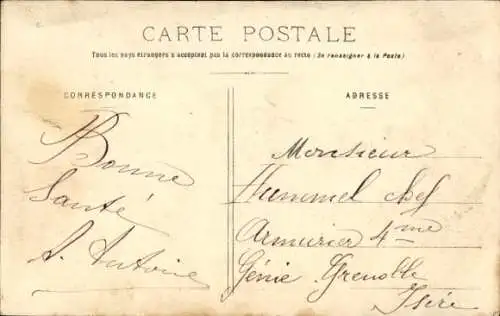 CARTE POSTALE
Tous les pays étrangers n'acceptent pas la correspondance au recto (Se renseigner à la Poste)
CORRESPONDANCE
Bonne
Santé
A. Antoine
ADRESSE
Monsieur
Hummel chef
Armurier 4me
Génie Grenoble
Isère